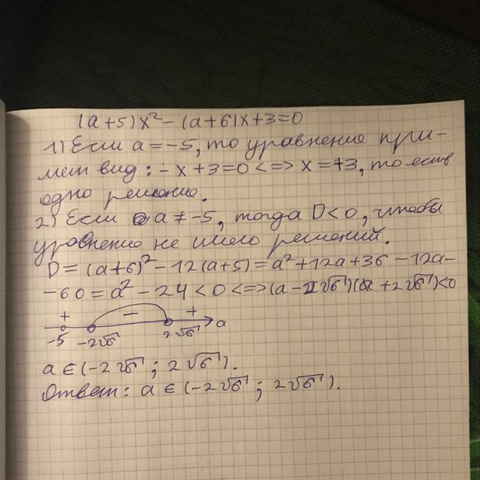 (a+5)x²-(a+6)x+3=0
1) Если a=-5, то уравнение при-
мет вид: -x+3=0<=>x=+3, то есть
одно решение.
2) Если a≠-5, тогда D<0, чтобы
уравнение не имело решений.
D=(a+6)²-12(a+5)=a²+12a+36-12a-
-60=a²-24<0<=>(a-2√6)(a+2√6)<0
+ - + a
-5 -2√6 2√6
a∈(-2√6; 2√6).
Ответ: a∈(-2√6; 2√6).